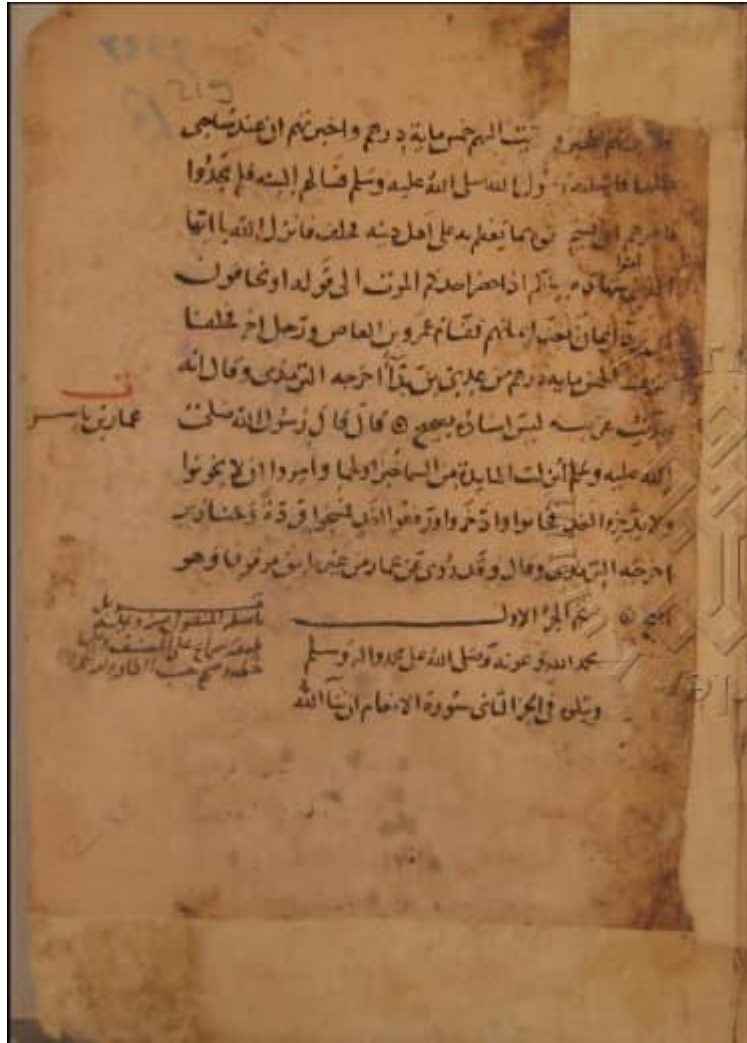 219
الخبر وديت اليهم خمس ماية درهم واخبرتهم ان عند صاحبي
مثلها فاتوا به رسول الله صلى الله عليه وسلم فسالهم البينة فلم يجدوا
فامرهم ان يستحلفوه بما يعظم به على اهل دينه فحلف فانزل الله يا ايها
الذين امنوا شهادة بينكم اذا حضر احدكم الموت الى قوله او يخافوا ان
ترد ايمان بعد ايمانهم فقام عمرو بن العاص ورجل اخر فحلفا
فنزعت الخمس ماية درهم من عدي بن بدا اخرجه الترمذى وقال انه
حديث غريب ليس اسناده بصحيح ۞ قال قال رسول الله صلى
ت
عمار بن ياسر
الله عليه وسلم انزلت المايدة من السما خبزا ولحما وامروا ان لا يخونوا
ولا يدخروا لغد فخانوا وادخروا ورفعوا لغد فمسخوا قردة وخنازير
اخرجه الترمذى وقال وقد روى عن عمار من غير طريق مرفوعا وهو
اصح ۞ تم الجزء الاول
بحمد الله وعونه وصلى الله على محمد واله وسلم
ويتلوه فى الجزء الثانى سورة الانعام ان شآ الله
قوبل
باصله المنقول منه وعليه
سماع على المصنف
حسب الطاقة